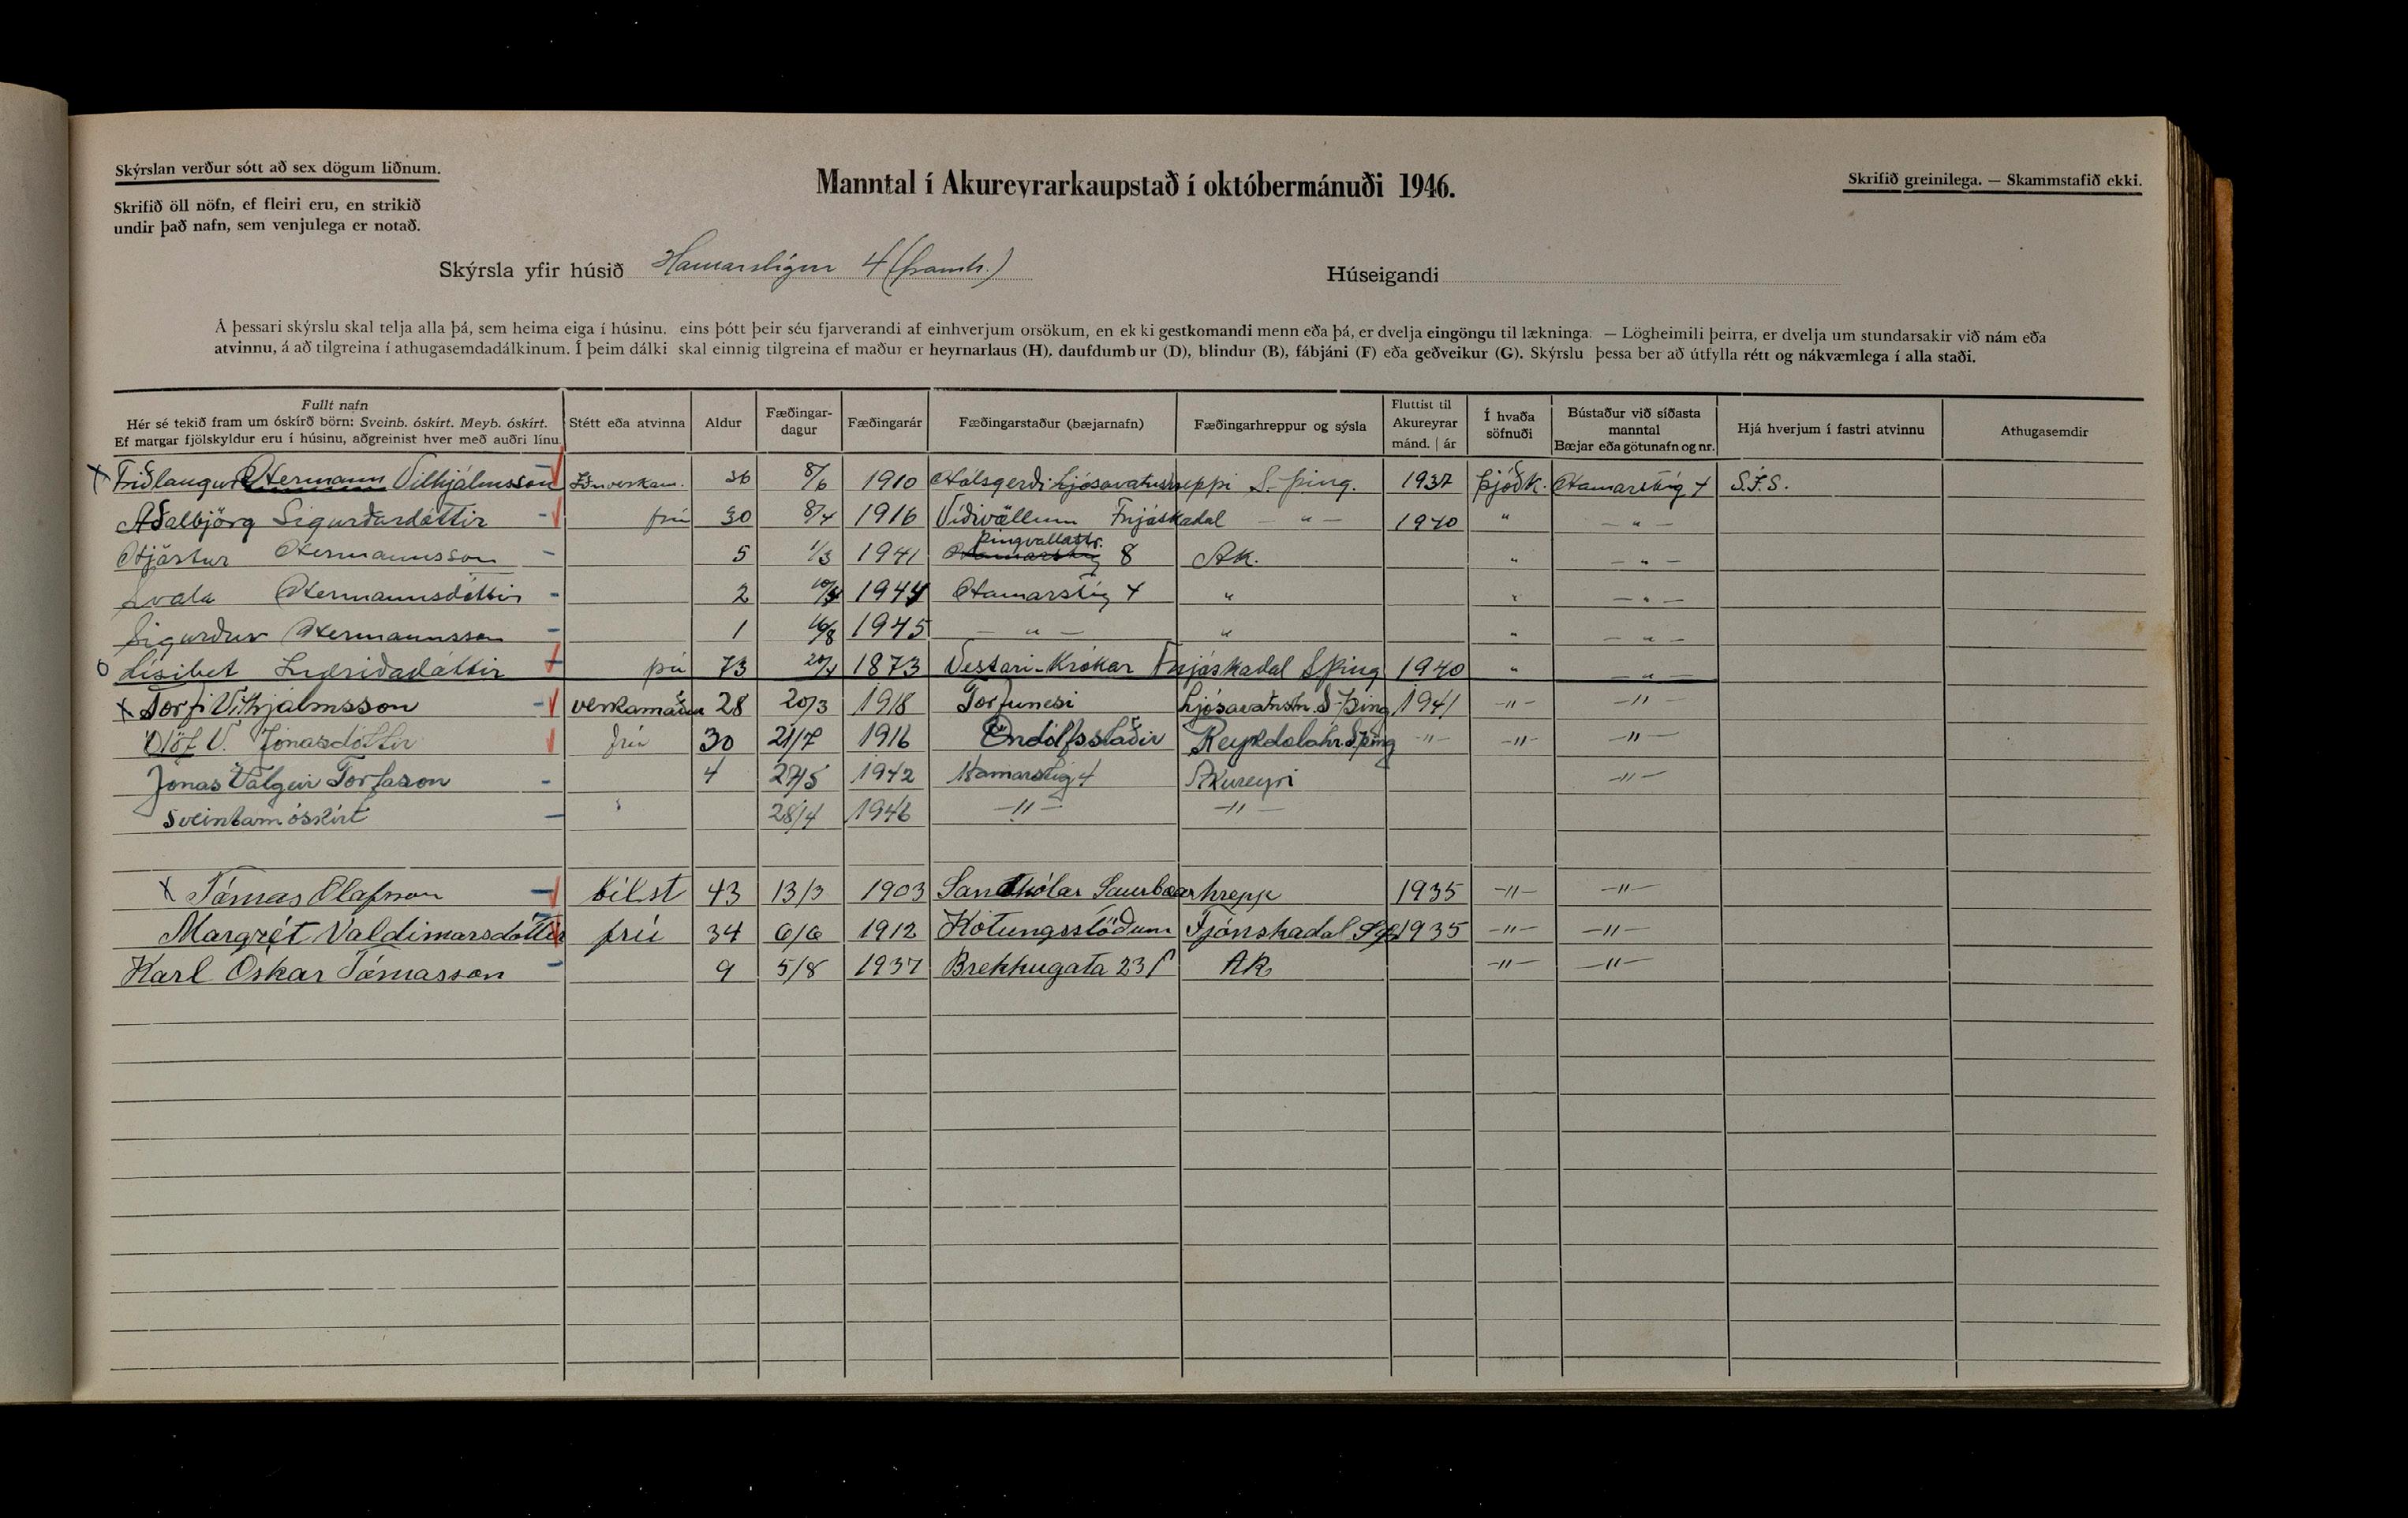 Skýrslan verður sótt að sex dögum liðnum.
Manntal í Akureyrarkaupstað í októbermánuði 1946.
Skrifið greinilega. — Skammstafið ekki.
Skrifið öll nöfn, ef fleiri eru, en strikið
undir það nafn, sem venjulega er notað.
Skýrsla yfir húsið Hamarstígur 4 (framh.) Húseigandi
Á þessari skýrslu skal telja alla þá, sem heima eiga í húsinu, eins þótt þeir séu fjarverandi af einhverjum orsökum, en ekki gestkomandi menn eða þá, er dvelja eingöngu til lækninga. — Lögheimili þeirra, er dvelja um stundarsakir við nám eða
atvinnu, á að tilgreina í athugasemdadálkinum. Í þeim dálki skal einnig tilgreina ef maður er heyrnarlaus (H), daufdumbur (D), blindur (B), fábjáni (F) eða geðveikur (G). Skýrslu þessa ber að útfylla rétt og nákvæmlega í alla staði.
Fullt nafn
Hér sé tekið fram um óskírð börn: Sveinb. óskírt. Meyb. óskírt.
Ef margar fjölskyldur eru í húsinu, aðgreinist hver með auðri línu.
Stétt eða atvinna
Aldur
Fæðingar-
dagur
Fæðingarár
Fæðingarstaður (bæjarnafn)
Fæðingarhreppur og sýsla
Fluttist til
Akureyrar
mánd. | ár
Í hvaða
söfnuði
Bústaður við síðasta
manntal
Bæjar eða götunafn og nr.
Hjá hverjum í fastri atvinnu
Athugasemdir
x Friðlaugur Hermann Vilhjálmsson Iðnverkam. 36 8/6 1910 Hólsgerði Ljósavatnshreppi S.-Þing. 1937 Þjóðk. Hamarstíg 4 S.Í.S.
Aðalbjörg Sigurðardóttir frú 30 8/4 1916 Víðivöllum Fnjóskadal — " — 1940 " — " —
Hermannsson 5 1/3 1941 Þingvallastr. 8 Ak. " — " —
Svala Hermannsdóttir 2 1944 Hamarstíg 4 " " — " —
Sigurður Hermannsson 1 1945 — " — " " — " —
o Lísibet Indriðadóttir frú 73 1873 Vestari-Krókar Fnjóskadal S Þing 1940 " — " —
x Torfi Vilhjálmsson verkamaður 28 20/3 1918 Torfunesi Ljósavatnshr. S-Þing 1941 -"- -"-
Ólöf V. Jónasdóttir frú 30 21/7 1916 Öndólfsstaðir Reykdalahr. S Þing -"- -"- -"-
Jónas Valgeir Torfason 4 27/5 1942 Hamarstíg 4 Akureyri -"-
Sveinbarn óskírt 28/4 1946 -"- -"-
x Tómas Ólafsson bílst 43 13/3 1903 Sandhólar Saurbæarhrepp 1935 -"- -"-
Margrét Valdimarsdóttir frú 34 6/6 1912 Kotungsstöðum Fjónskadal 1935 -"- -"-
Karl Óskar Tómasson 9 5/8 1937 Brekkugata 23 Ak -"- -"-